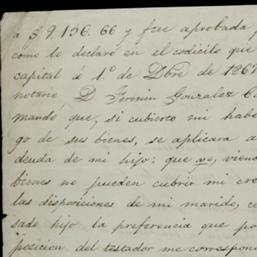 a $9,156.66 y fue aprobada p
como te declaro en el codicilo que
capital á 1º de Dbre de 1867
notario, D Fermin Gonzalez C
mando que, si cubierto mi habe
go de sus bienes, se aplicara a
deuda de mi hijo: que yo, viend
bienes no pueden cubrir mi cre
las disposiciones de mi marido, ce
sado hijo la preferencia que po
posicion del testador me correspon